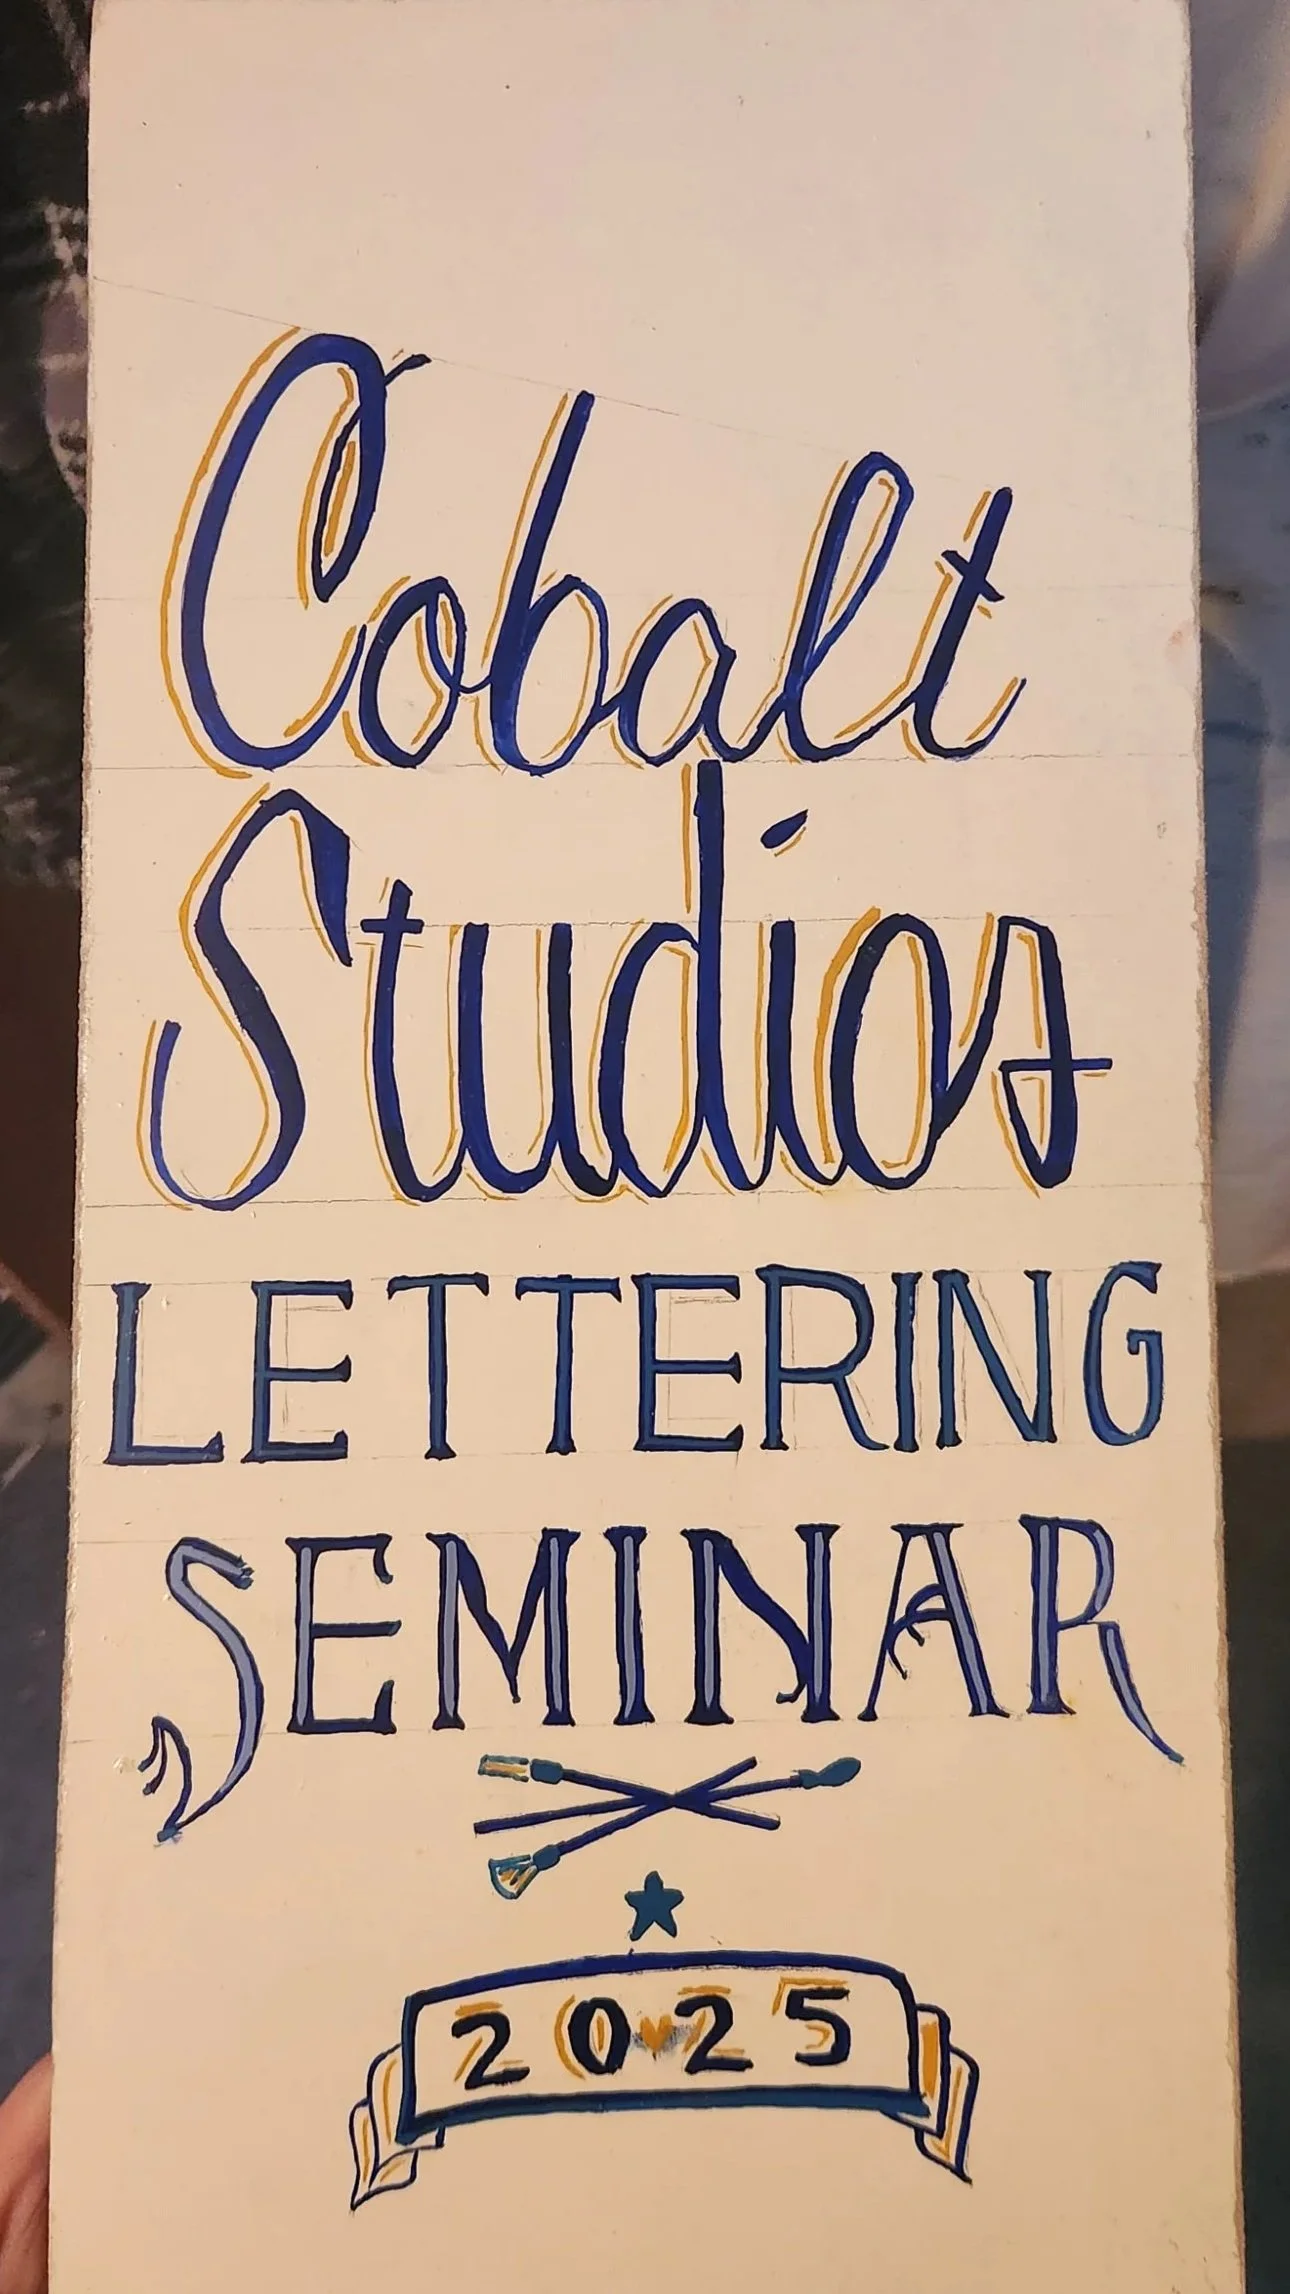 Cobalt
Studios
LETTERING
SEMINAR
2025